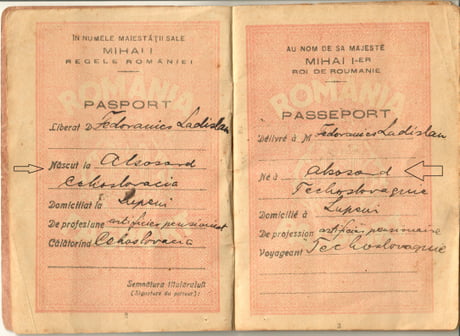 IN NUMELE MAIESTĂȚII SALE
MIHAI I
REGELE ROMÂNIEI
ROMANIA
PAȘPORT
Liberat D Fedovanics Ladislau
Născut la Alsosard
Cehoslovacia
Domiciliat la Lupeni
De profesiune artificier pensionat
Călătorind Cehoslovacia
Semnătura titularului
(Signature du porteur):
2
AU NOM DE SA MAJESTÉ
MIHAI I-ER
ROI DE ROUMANIE
ROMANIA
PASSEPORT
Délivré à M Fedovanics Ladislau
Né à Alsosard
Techoslovaquie
Domicilié à Lupeni
De profession artificier pensionaire
Voyageant Techoslovaquie
3